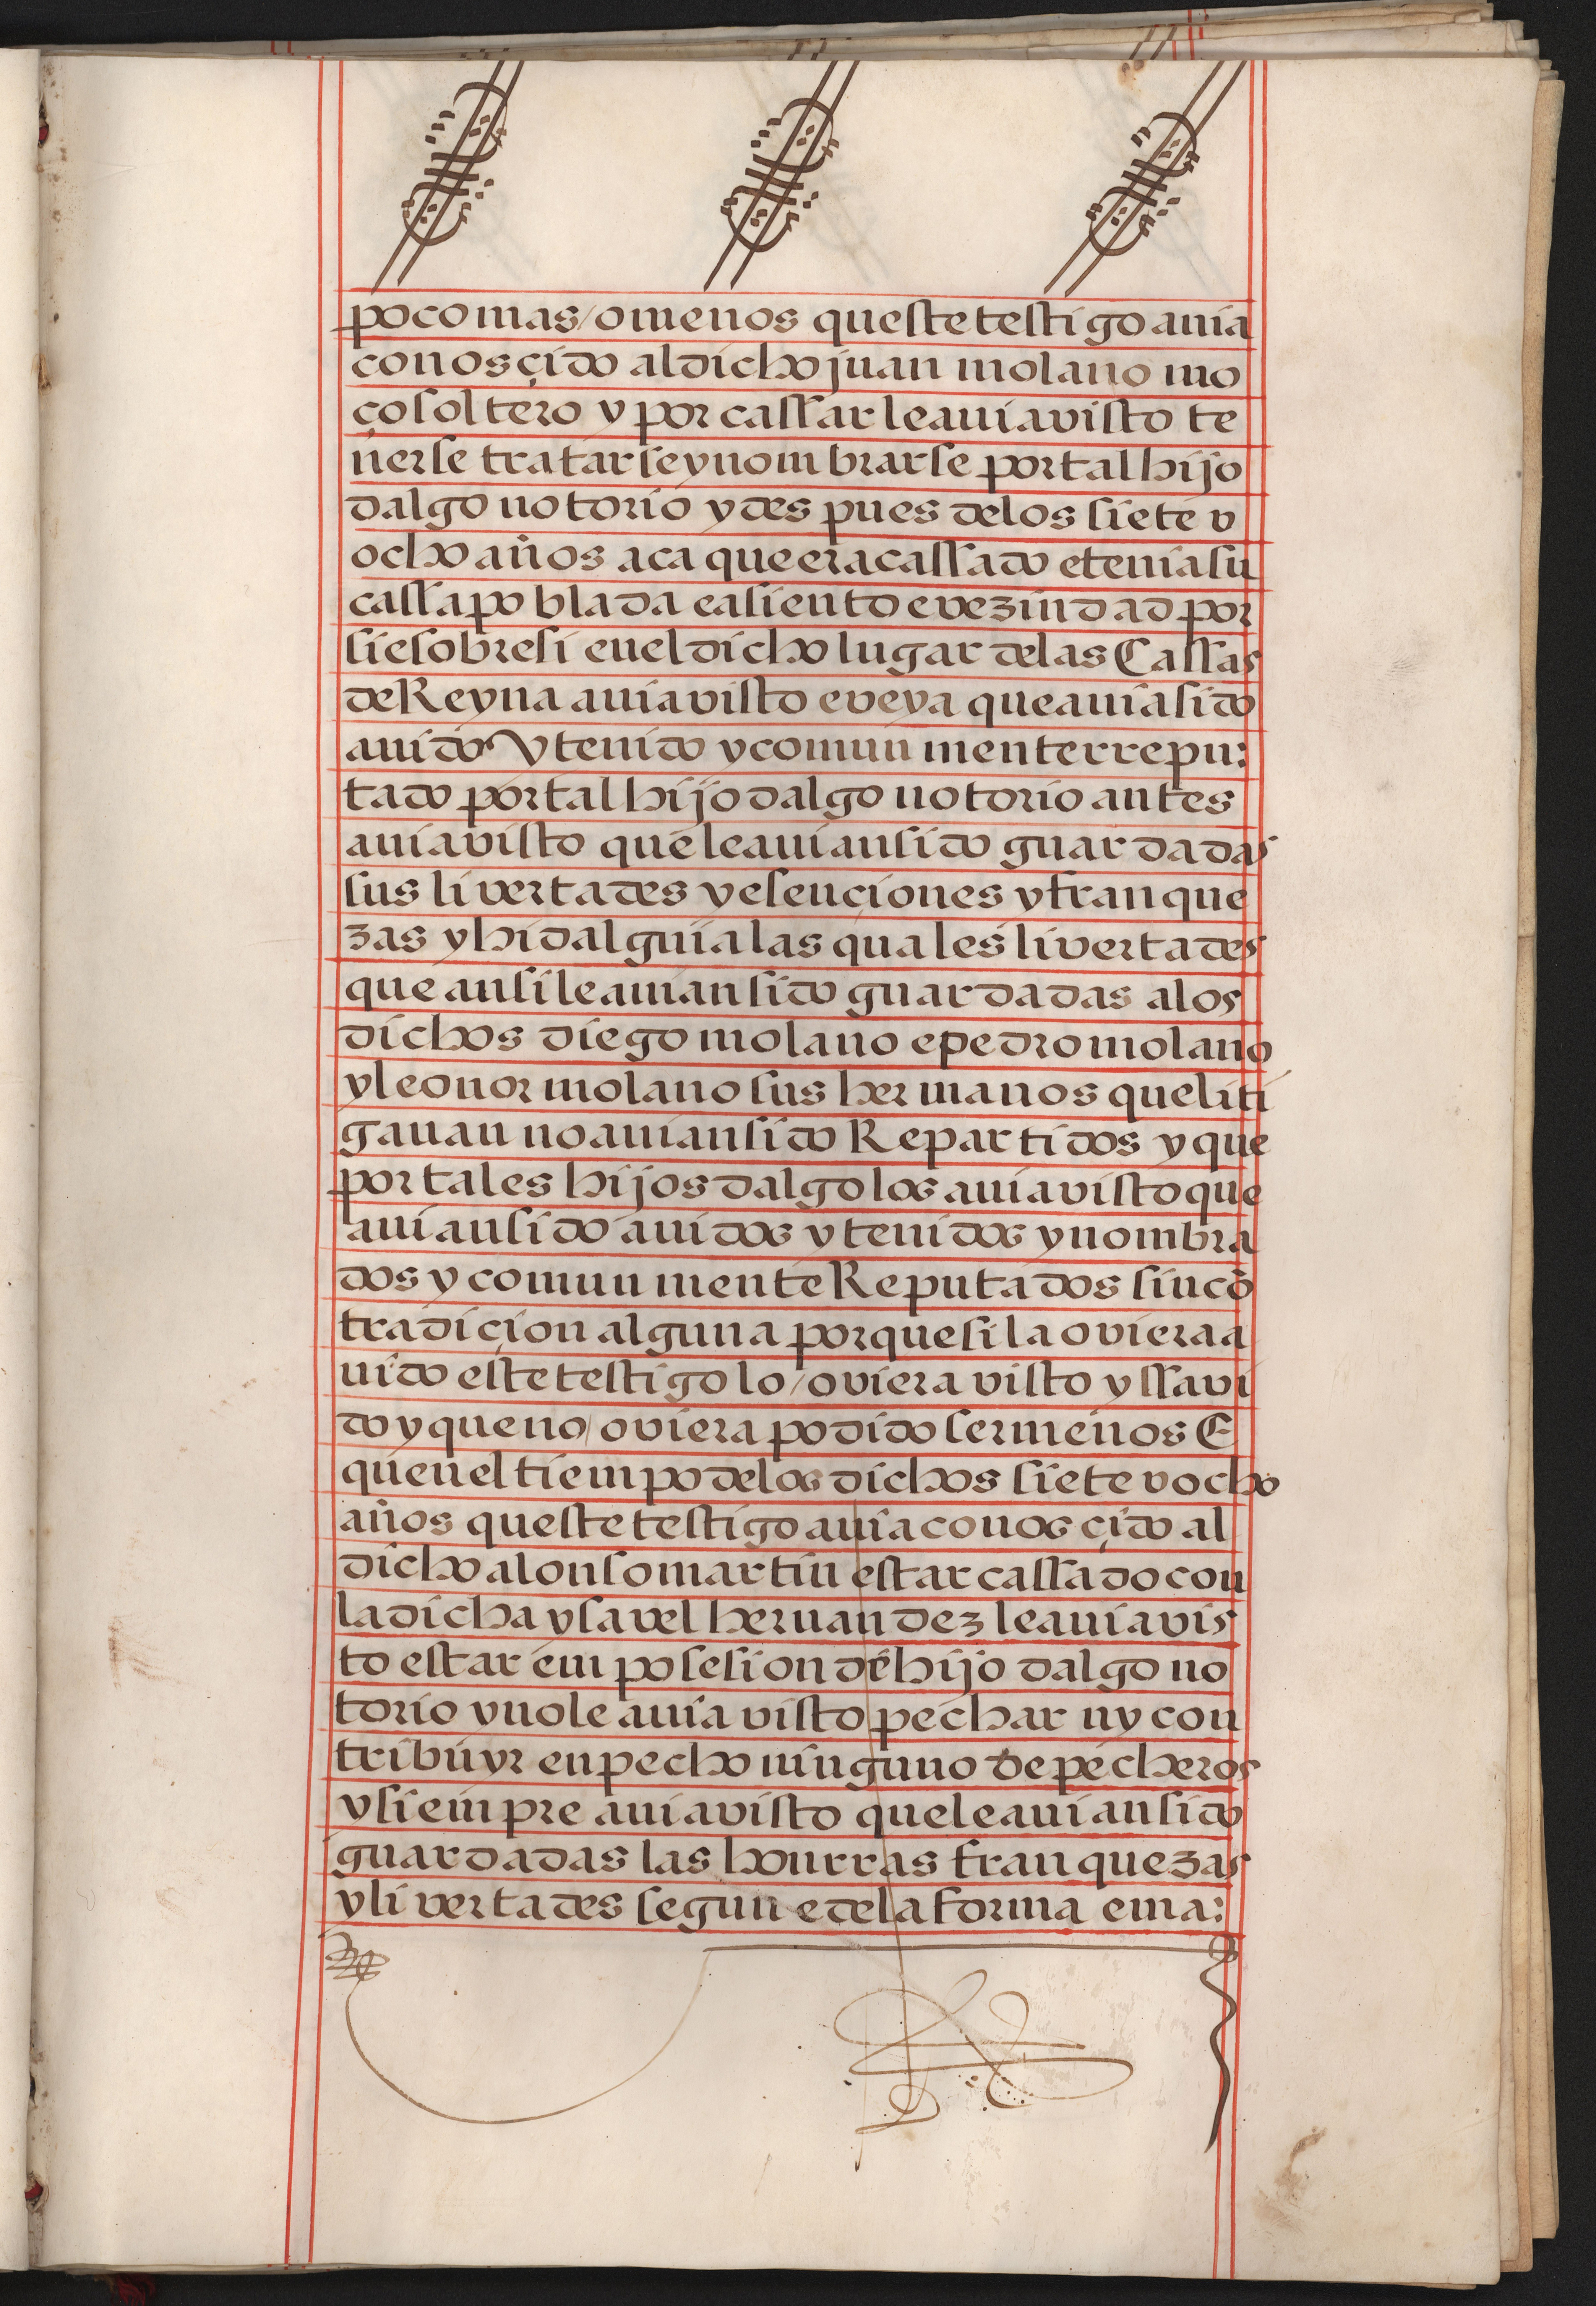 poco mas / o menos queste testigo auia
conosçido al dicho juan molano mo
ço soltero y por cassar le auia visto te
nerse tratarse y nombrarse por tal hijo
dalgo notorio y despues de los siete v
ocho años aca que era cassado e tenia su
cassa poblada e asiento e vezindad por
si e sobre si en el dicho lugar de las Cassas
de Reyna auia visto e veya que auia sido
auido y tenido y comun mente rrepu:
tado por tal hijo dalgo notorio antes
auia visto que le auian sido guardadas
sus livertades y esençiones y franque
zas y hidalguia las quales livertades
que ansi le auian sido guardadas a los
dichos diego molano e pedro molano
y leonor molano sus hermanos que liti
gauan no auian sido Repartidos y que
por tales hijos dalgo los auia visto que
auian sido auidos y tenidos y nombra
dos y comun mente Reputados sin cõ
tradiçion alguna porque si la oviera a
uido este testigo lo / oviera visto y ssavi
do y que no / oviera podido ser menos E
quen el tiempo de los dichos siete v ocho
años queste testigo auia conosçido al
dicho alonso martin estar cassado con
la dicha ysavel hernandez le auia vis
to estar em posesion de hijo dalgo no
torio y no le auia visto pechar ny con
tribuyr en pecho ninguno de pecheros
y siempre auia visto que le auian sido
guardadas las honrras franquezas
y livertades segun e de la forma e ma: